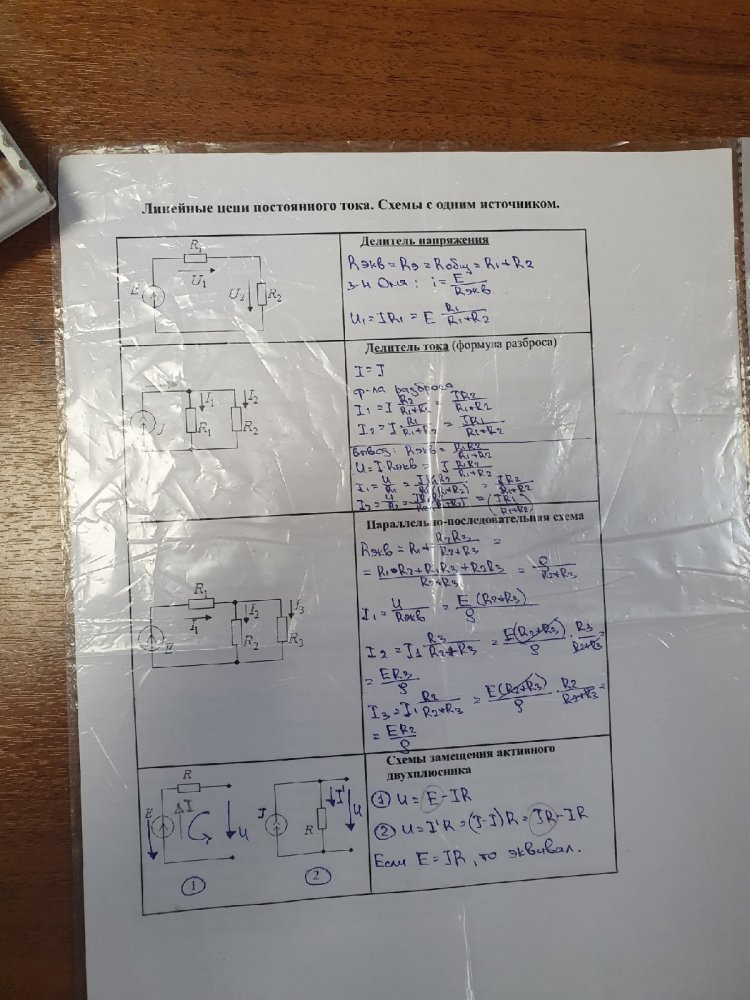 Линейные цепи постоянного тока. Схемы с одним источником.
R₁
E
U₁
U₂
R₂
Делитель напряжения
Rэкв = Rэ = Rобщ = R₁+R₂
з-н Ома: i = E/Rэкв
U₁ = IR₁ = E R₁/(R₁+R₂)
J
I₁
I₂
R₁
R₂
Делитель тока (формула разброса)
I = J
ф-ла разброса
I₁ = I R₂/(R₁+R₂) = IR₂/(R₁+R₂)
I₂ = I · R₁/(R₁+R₂) = IR₁/(R₁+R₂)
вывод: Rэкв = R₁R₂/(R₁+R₂)
U = I·Rэкв = J R₁R₂/(R₁+R₂)
I₁ = U/R₁ = = IR₂/(R₁+R₂)
I₂ = U/R₂ = = (IR₁/(R₁+R₂))
R₁
I₁
E
I₂
I₃
R₂
R₃
Параллельно-последовательная схема
Rэкв = R₁ + R₂R₃/(R₂+R₃) =
= (R₁·R₂+R₁R₃+R₂R₃)/(R₂+R₃) = ρ/(R₂+R₃)
I₁ = U/Rэкв = E(R₂+R₃)/ρ
I₂ = I₁ R₃/(R₂+R₃) = E(R₂+R₃)/ρ · R₃/(R₂+R₃) =
= ER₃/ρ
I₃ = I₁ R₂/(R₂+R₃) = E(R₂+R₃)/ρ · R₂/(R₂+R₃) =
= ER₂/ρ
R
E
I
U
1
J
R
I'
U
2
Схемы замещения активного
двухплюсника
① U = E - IR
② U = I'R = (J-I)R = JR - IR
Если E = JR, то эквивал.